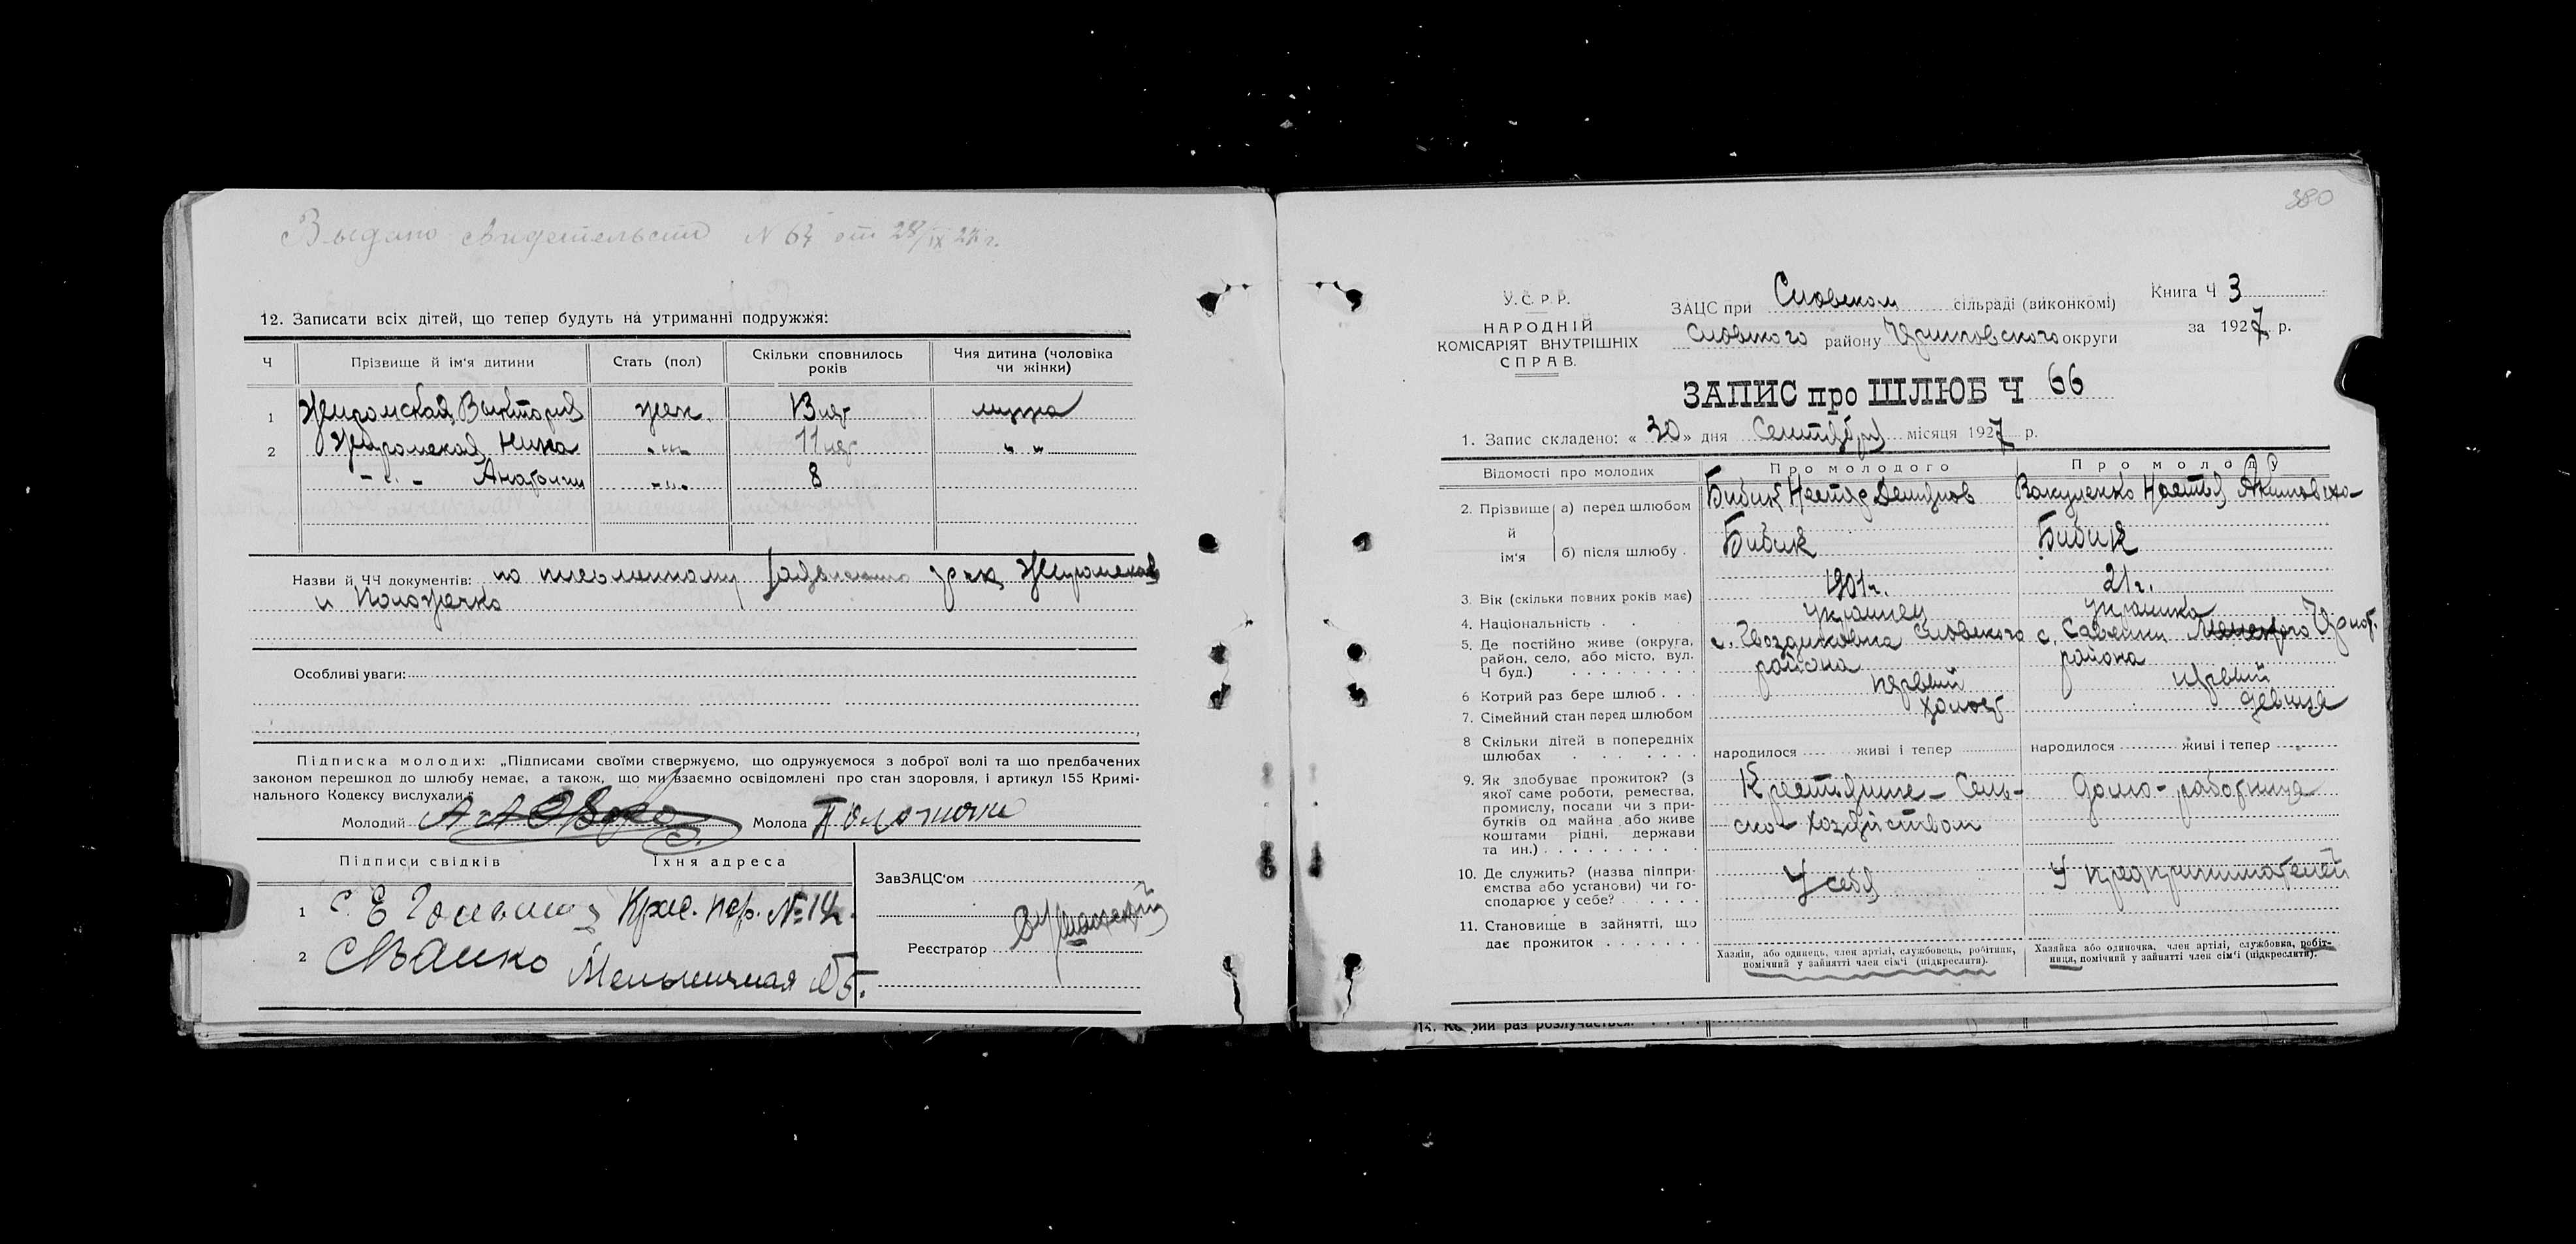 Выдано свидетельство N 67 от 28/IX 27 г.
12. Записати всіх дітей, що тепер будуть на утриманні подружжя:
Ч Прізвище й ім'я дитини Стать (пол) Скільки сповнилось років Чия дитина (чоловіка чи жінки)
1 Жиромская Виктория жен. 13 лет мужа
2 Жиромская Нина -"- 11 лет " "
-"- Анатолий -"- 8
Назви й ЧЧ документів: по письменному заявлению граж Жиромская
и Положечко
Особливі уваги:
Підписка молодих: „Підписами своїми стверджуємо, що одружуємося з доброї волі та що предбачених
законом перешкод до шлюбу немає, а також, що ми взаємно освідомлені про стан здоровля, і артикул 155 Кримі-
нального Кодексу вислухали."
Молодий Молода
Підписи свідків Їхня адреса
1 С. Е Крас. пер. № 14.
2 Мельничная
ЗавЗАЦС'ом
Реєстратор
380
У. С. Р. Р.
НАРОДНІЙ
КОМІСАРІЯТ ВНУТРІШНІХ
СПРАВ.
ЗАЦС при Сновском сільраді (виконкомі)
Сновского району округи
Книга Ч 3
за 1927 р.
ЗАПИС про ШЛЮБ Ч 66
1. Запис складено: « 30 » дня Сентября місяця 1927 р.
Відомості про молодих Про молодого Про молоду
2. Прізвище й ім'я а) перед шлюбом Бибик Нестор Демидов Вакуленко Настя Акимовна
б) після шлюбу Бибик Бибик
3. Вік (скільки повних років має) 1901 г. 21 г.
4. Національність украинец украинка
5. Де постійно живе (округа, район, село, або місто, вул. Ч буд.) с. Гвоздиковка Сновского района с. района
6 Котрий раз бере шлюб первый первый
7. Сімейний стан перед шлюбом холост девица
8 Скільки дітей в попередніх шлюбах народилося живі і тепер народилося живі і тепер
9. Як здобуває прожиток? (з якої саме роботи, ремества, промислу, посади чи з прибутків од майна або живе коштами рідні, держави та ин.) Крестьянин – Сельско-хозяйством Домо-работница
10. Де служить? (назва підприємства або установи) чи господарює у себе? У себя У предпринимателей
11. Становище в зайнятті, що дає прожиток
Хазяїн, або одинець, член артілі, службовець, робітник, помічний у зайнятті член сім'ї (підкреслити).
Хазяйка або одиночка, член артілі, службовка, робітниця, помічний у зайнятті член сім'ї (підкреслити).
розлучається.